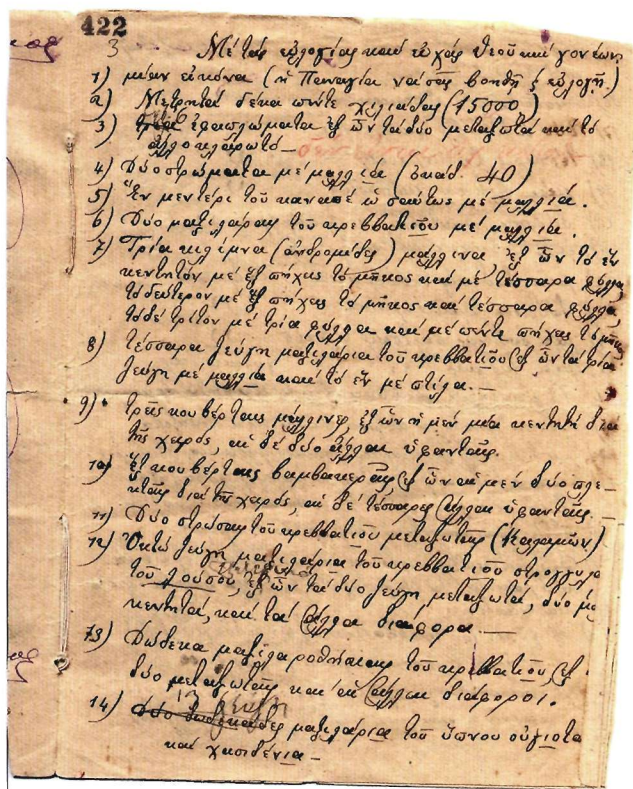 422
3 Μέ τάς εὐλογίας καί εὐχάς Θεοῦ καί γονέων
1) μίαν εἰκόνα (ἡ Παναγία νά σᾶς βοηθῇ & εὐλογῇ.)
2) Μετρητά δέκα πέντε χιλιάδας (15000)
3) τρία ἐφαπλώματα ἐξ ὧν τά δύο μεταξωτά καί τό
ἄλλο κλαρωτό —
4) Δύο στρώματα μέ μαλλιά (ὀκάδ. 40)
5) Ἕν μεντέρι τοῦ καναπέ ὡσαύτως μέ μαλλιά.
6) Δύο μαξιλάρας τοῦ κρεββατίου μέ μαλλιά.
7) Τρία κιλίμια (ἀνδρομίδες) μάλλινα, ἐξ ὧν τό ἕν
κεντητόν μέ ἕξ πήχας τό μῆκος καί μέ τέσσαρα φύλλα,
τό δεύτερον μέ ἕξ πήχας τό μῆκος καί τέσσαρα φύλλα,
τό δέ τρίτον μέ τρία φύλλα καί μέ πέντε πήχας τό μῆκος
8) Τέσσαρα ζεύγη μαξιλάρια τοῦ κρεββατίου ἐξ ὧν τά τρία
ζεύγη μέ μαλλιά καί τό ἕν μέ στίλα. —
9) Τρεῖς κουβέρτας μάλλινες, ἐξ ὧν ἡ μέν μία κεντητή διά
τῆς χειρός, αἱ δέ δύο ἄλλαι ὑφανταίς.
10) Ἕξ κουβέρτας βαμβακεράς, ἐξ ὧν αἱ μέν δύο πλε-
κταίς διά τῆς χειρός, αἱ δέ τέσσαρες ἄλλαι ὑφανταίς.
11) Δύο στρώσας τοῦ κρεββατίου μεταξωτάς (Καλαμῶν)
12) Ὀκτώ ζεύγη μαξιλάρια τοῦ κρεββατίου στρογγυλά
τοῦ λούσου, ἐξ ὧν τά δύο ζεύγη μεταξωτά, δύο
κεντητά, καί τά ἄλλα διάφορα. —
13) Δώδεκα μαξιλαροθήκας τοῦ κρεββατίου, ἐξ
δύο μεταξωτάς καί αἱ ἄλλαι διάφοροι.
14) 12 ζεύγη μαξιλάρια τοῦ ὕπνου
καί χασιδένια —